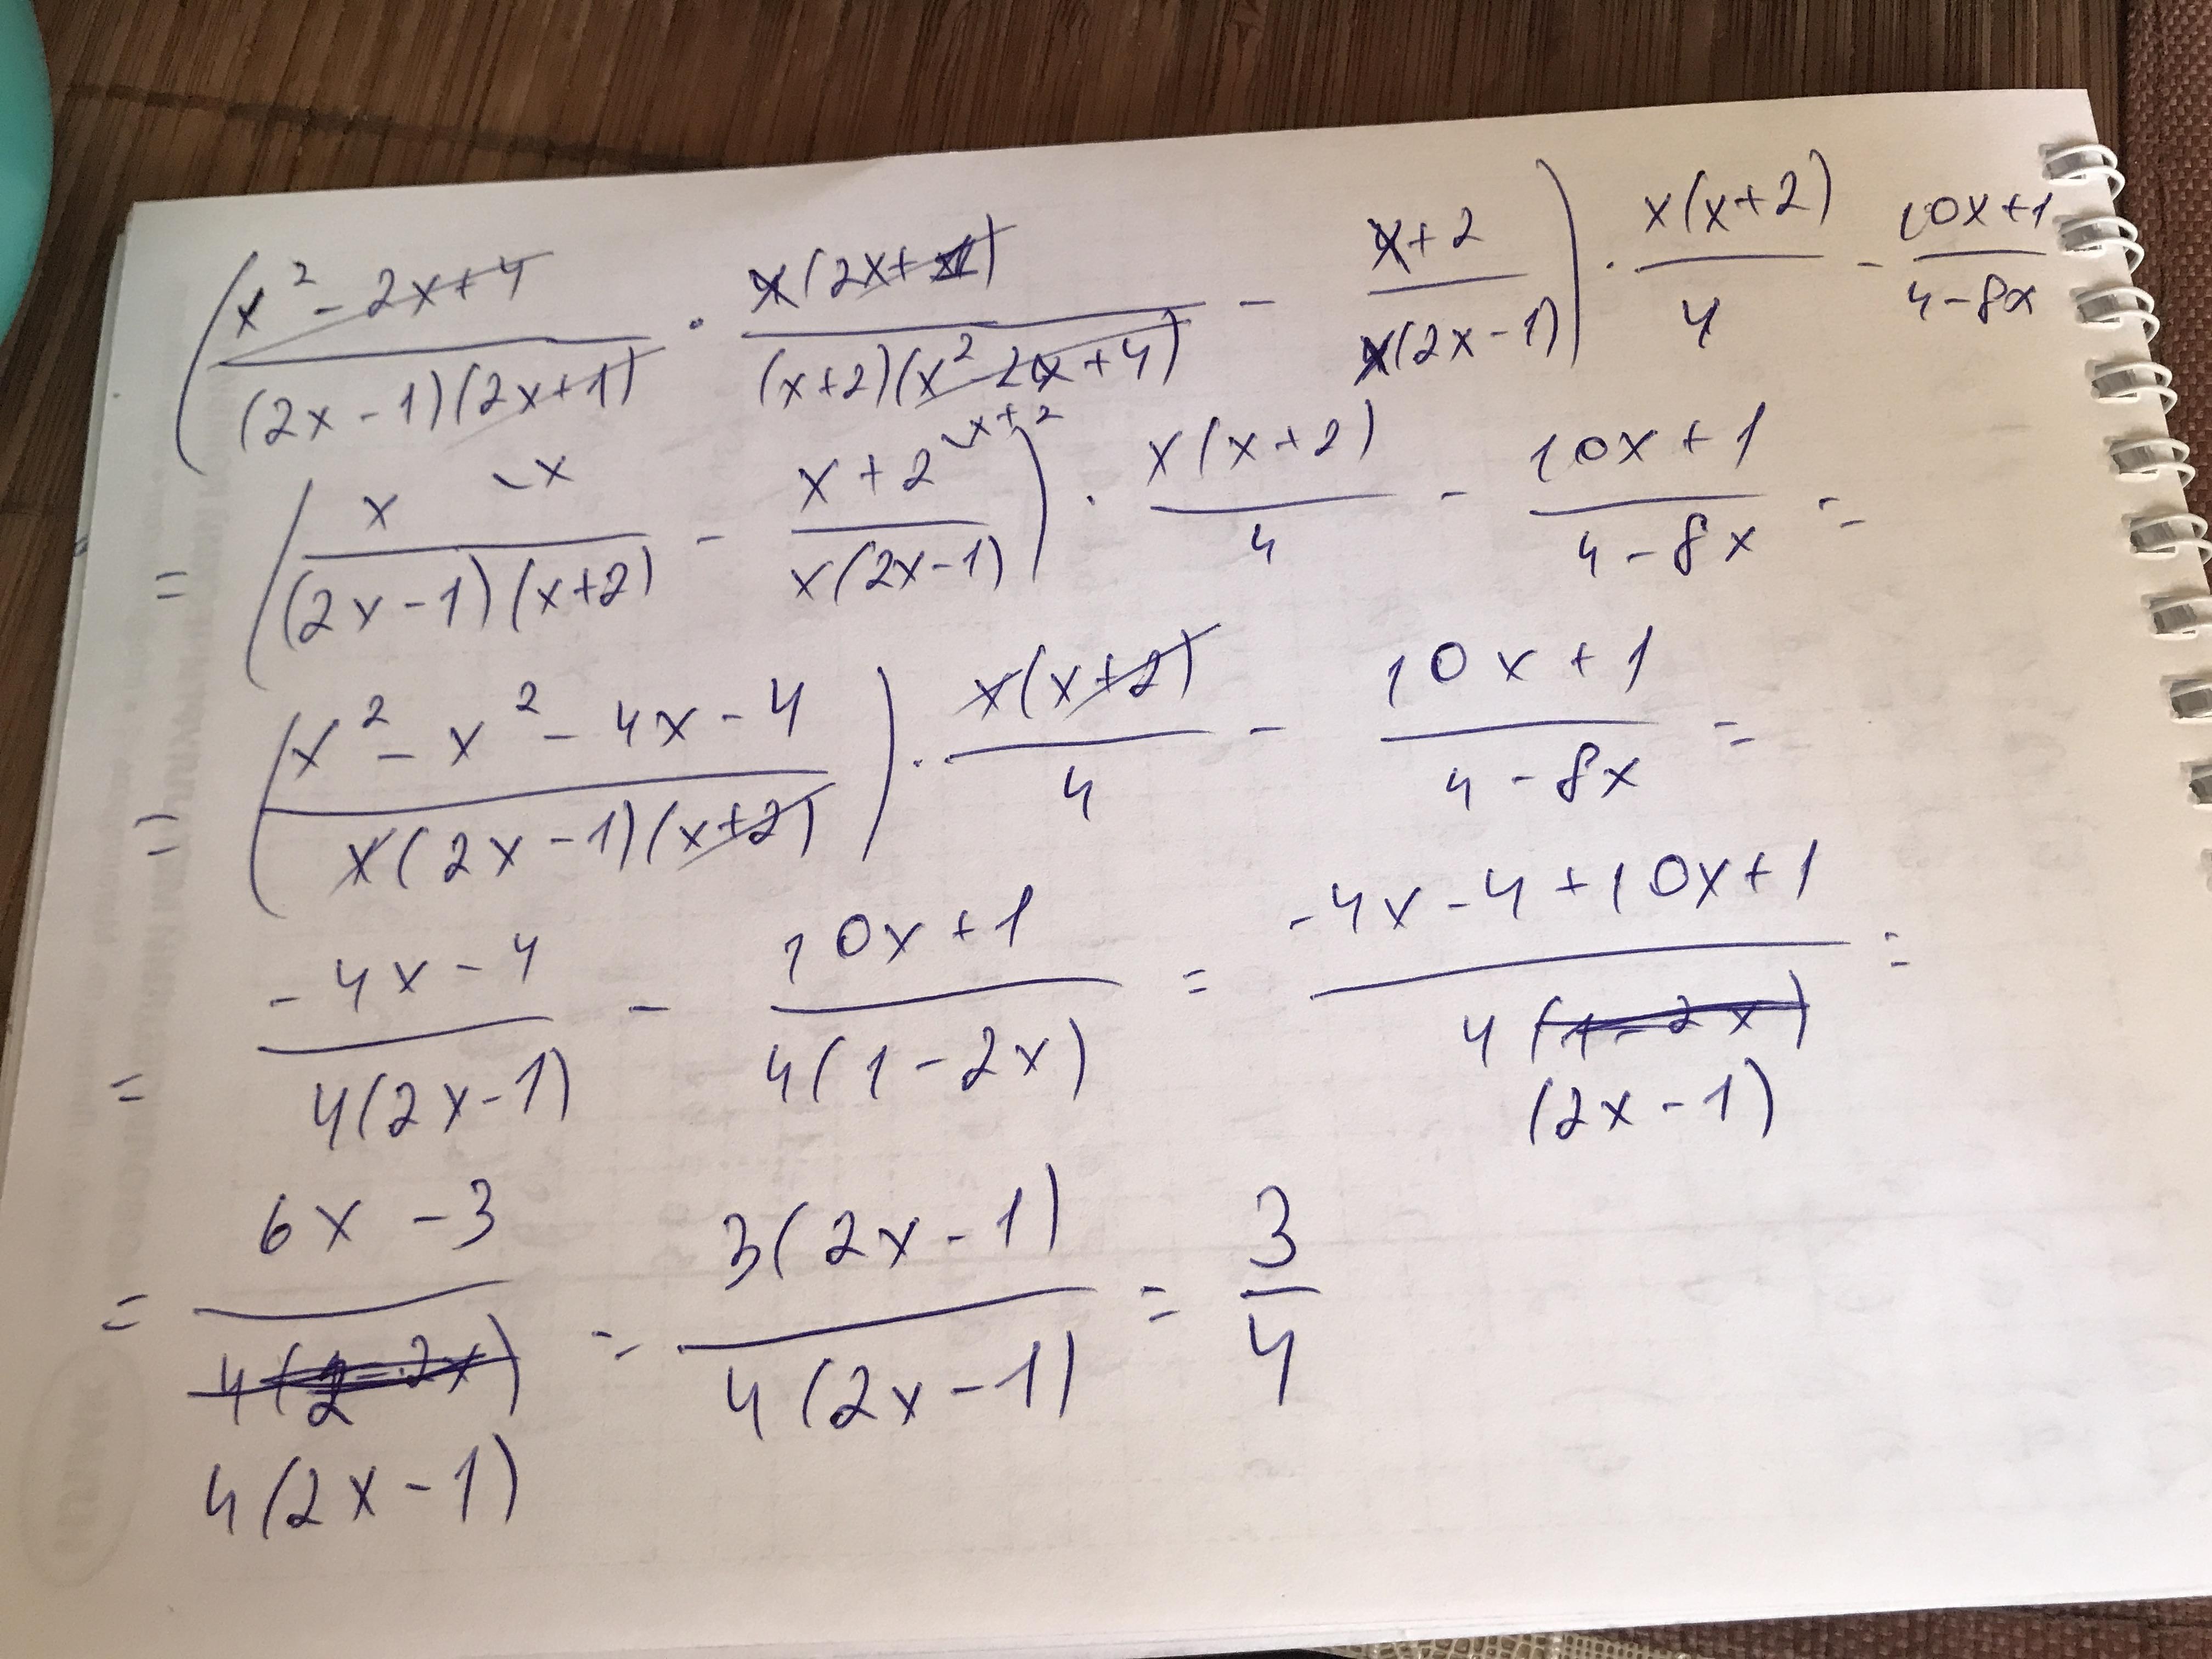 (x² - 2x + 4 / (2x - 1)(2x + 1) · x(2x + 1) / (x + 2)(x² - 2x + 4) - x + 2 / x(2x - 1)) · x(x + 2) / 4 - 10x + 1 / 4 - 8x
= (x \x / (2x - 1)(x + 2) - x + 2 \x + 2 / x(2x - 1)) · x(x + 2) / 4 - 10x + 1 / 4 - 8x =
= (x² - x² - 4x - 4 / x(2x - 1)(x + 2)) · x(x + 2) / 4 - 10x + 1 / 4 - 8x =
= -4x - 4 / 4(2x - 1) - 10x + 1 / 4(1 - 2x) = -4x - 4 + 10x + 1 / 4 (2x - 1) =
= 6x - 3 / 4(2x - 1) = 3(2x - 1) / 4(2x - 1) = 3 / 4